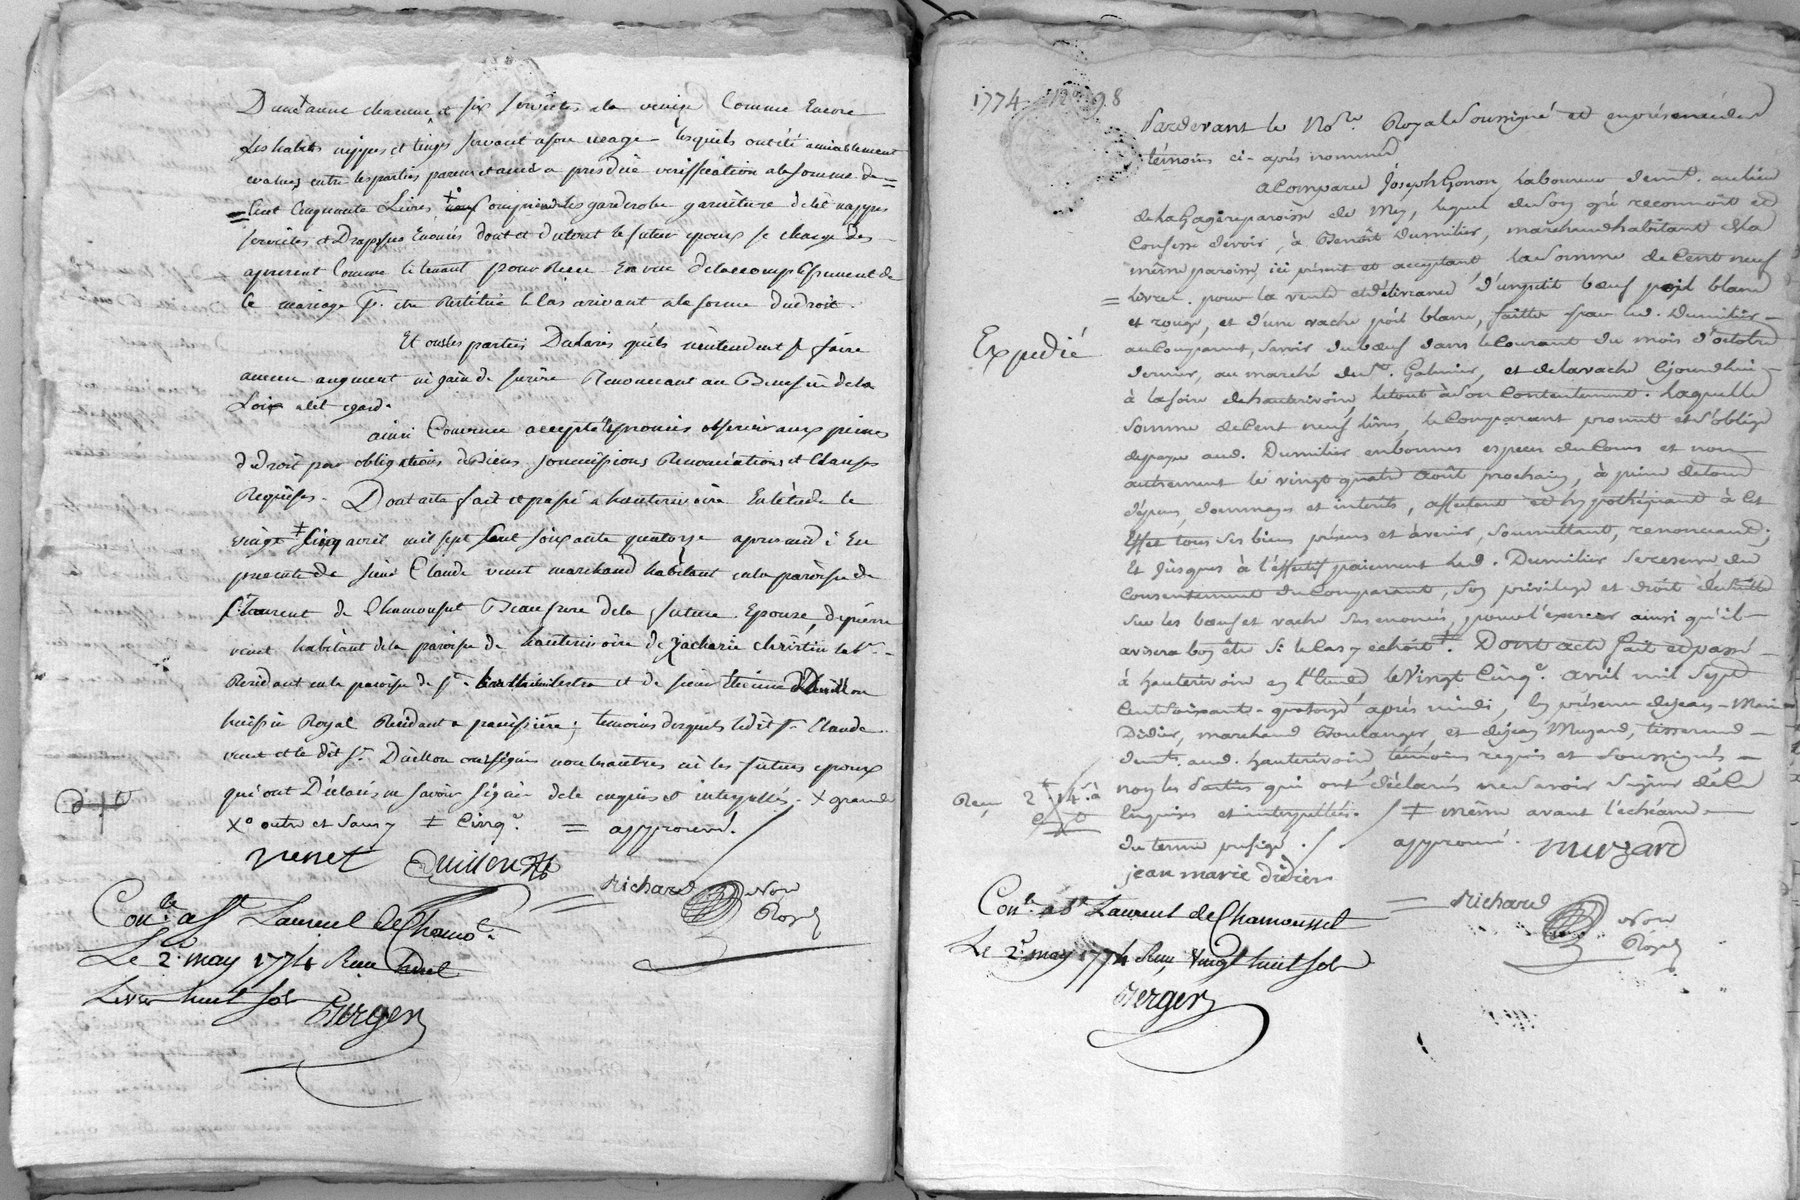 D'une autre chacune et six serviettes a la venise Comme Encore
Les habits nippes et linges servant a son usage lesquels ont été amiablement
evalués entre les parties parens et amis apres due veriffication a la somme de =
Cent Cinquante Livres, Comprendre les garderobe garniture de lit nappes
serviettes et Drap sus Enoncés dont et du tout le futur epoux se charge des
apresent Comme le tenant pour Reçu En vue de l'accomplissement de
Ce mariage pr. etre Restitué le cas arrivant a la forme du droit.
Et ont les parties Declarés qu'ils n'entendent se faire
aucun augment ni gain de survie Renonceant au Beneffice de la
Loix a cet egard.
ainsi Convenu accepté promis observer aux peines
de droit par obligations de Biens soumissions Renonciations et Clauses
Requises. Dont acte fait et passé a hauterivoire En l'étude le
vingt ‡ Cinq avril mil sept Cent soixante quatorze apres midi En
presence de sieur Claude venet marchand habitant en la paroisse de
St Laurent de Chamousset Beau frere de la future Epouse, de pierre
venet habitant de la paroisse de hauterivoire de Zacharie Christin labr.
Residant en la paroisse de St. et de sieur Etienne Duillon
huissier Royal Residant a panissiere; temoins desquels ledit Sr Claude
venet et le dit Sr. Duillon ont signés non les autres ni les futurs epoux
qui ont Déclarés ne savoir signer de ce enquis et interpellés. X grande
X° outre et sans ‡ Cinq. = approuvé.
venet Duillon
Richard Nore
Royal
Conlé a St Laurent de Chamot.
Le 2. may 1774 Reçu
Livres huit sols
Berger
1774 98
Pardevant le Nore. Royal Soussigné et en présence des
témoins ci-après nommés
A Comparu Joseph Gonon, laboureur demt. au lieu
de la Gagère paroisse de Mey, lequel de son gré reconnoit et
Confesse devoir, à Benoît Dumilier, marchand habitant de la
même paroisse, ici présent et acceptant la somme de Cent neuf
= livres. pour la vente et délivrance d'un petit boeuf poil blanc
et rouge, et d'une vache poil blanc, faittes par led. Dumilier
Expedié
au Comparant, Savoir du boeuf dans le Courant du mois d'octobre
dernier, au marché de St. Galmier, et de la vache Ejourdhui
à la foire de hauterivoire le tout à Son Contentement. Laquelle
somme de Cent neuf livres, le Comparant promet et s'oblige
de payer aud. Dumilier en bonnes especes du Cours et non
autrement le vingt quatre Août prochain, à peine de tous
dépens, dommages et interêts, affectant et hypothéquant à Cet
Effet tous ses biens présens et à venir, soumettant, renonceant;
Et jusques à l'effectif paiement led. Dumilier se reserve du
Consentement du Comparant, Son privilege et droit de suitte
sur les boeuf et vache sus enoncés, pour l'exercer ainsi qu'il
avisera bon être si le Cas y échoit ‡. Dont acte fait et passé
à hauterivoire en l'Etude le Vingt Cinqe. avril mil Sept
Cent Soixante quatorze après midi, En présence de Jean-Marie
Didier, marchand Boulanger, et de Jean Muzard, tisserand
demts. aud. hauterivoire témoins requis et soussignés
non les Parties qui ont déclarés ne savoir Signer de ce
Enquises et interpellées. ‡ même avant l'échéance
du terme prefigé. approuvé. muzard
jean marie didier
Richard Nore
Royal
Conlé a St. Laurent de Chamousset
Le 2. may 1774 Reçu Vingt huit sols
Berger